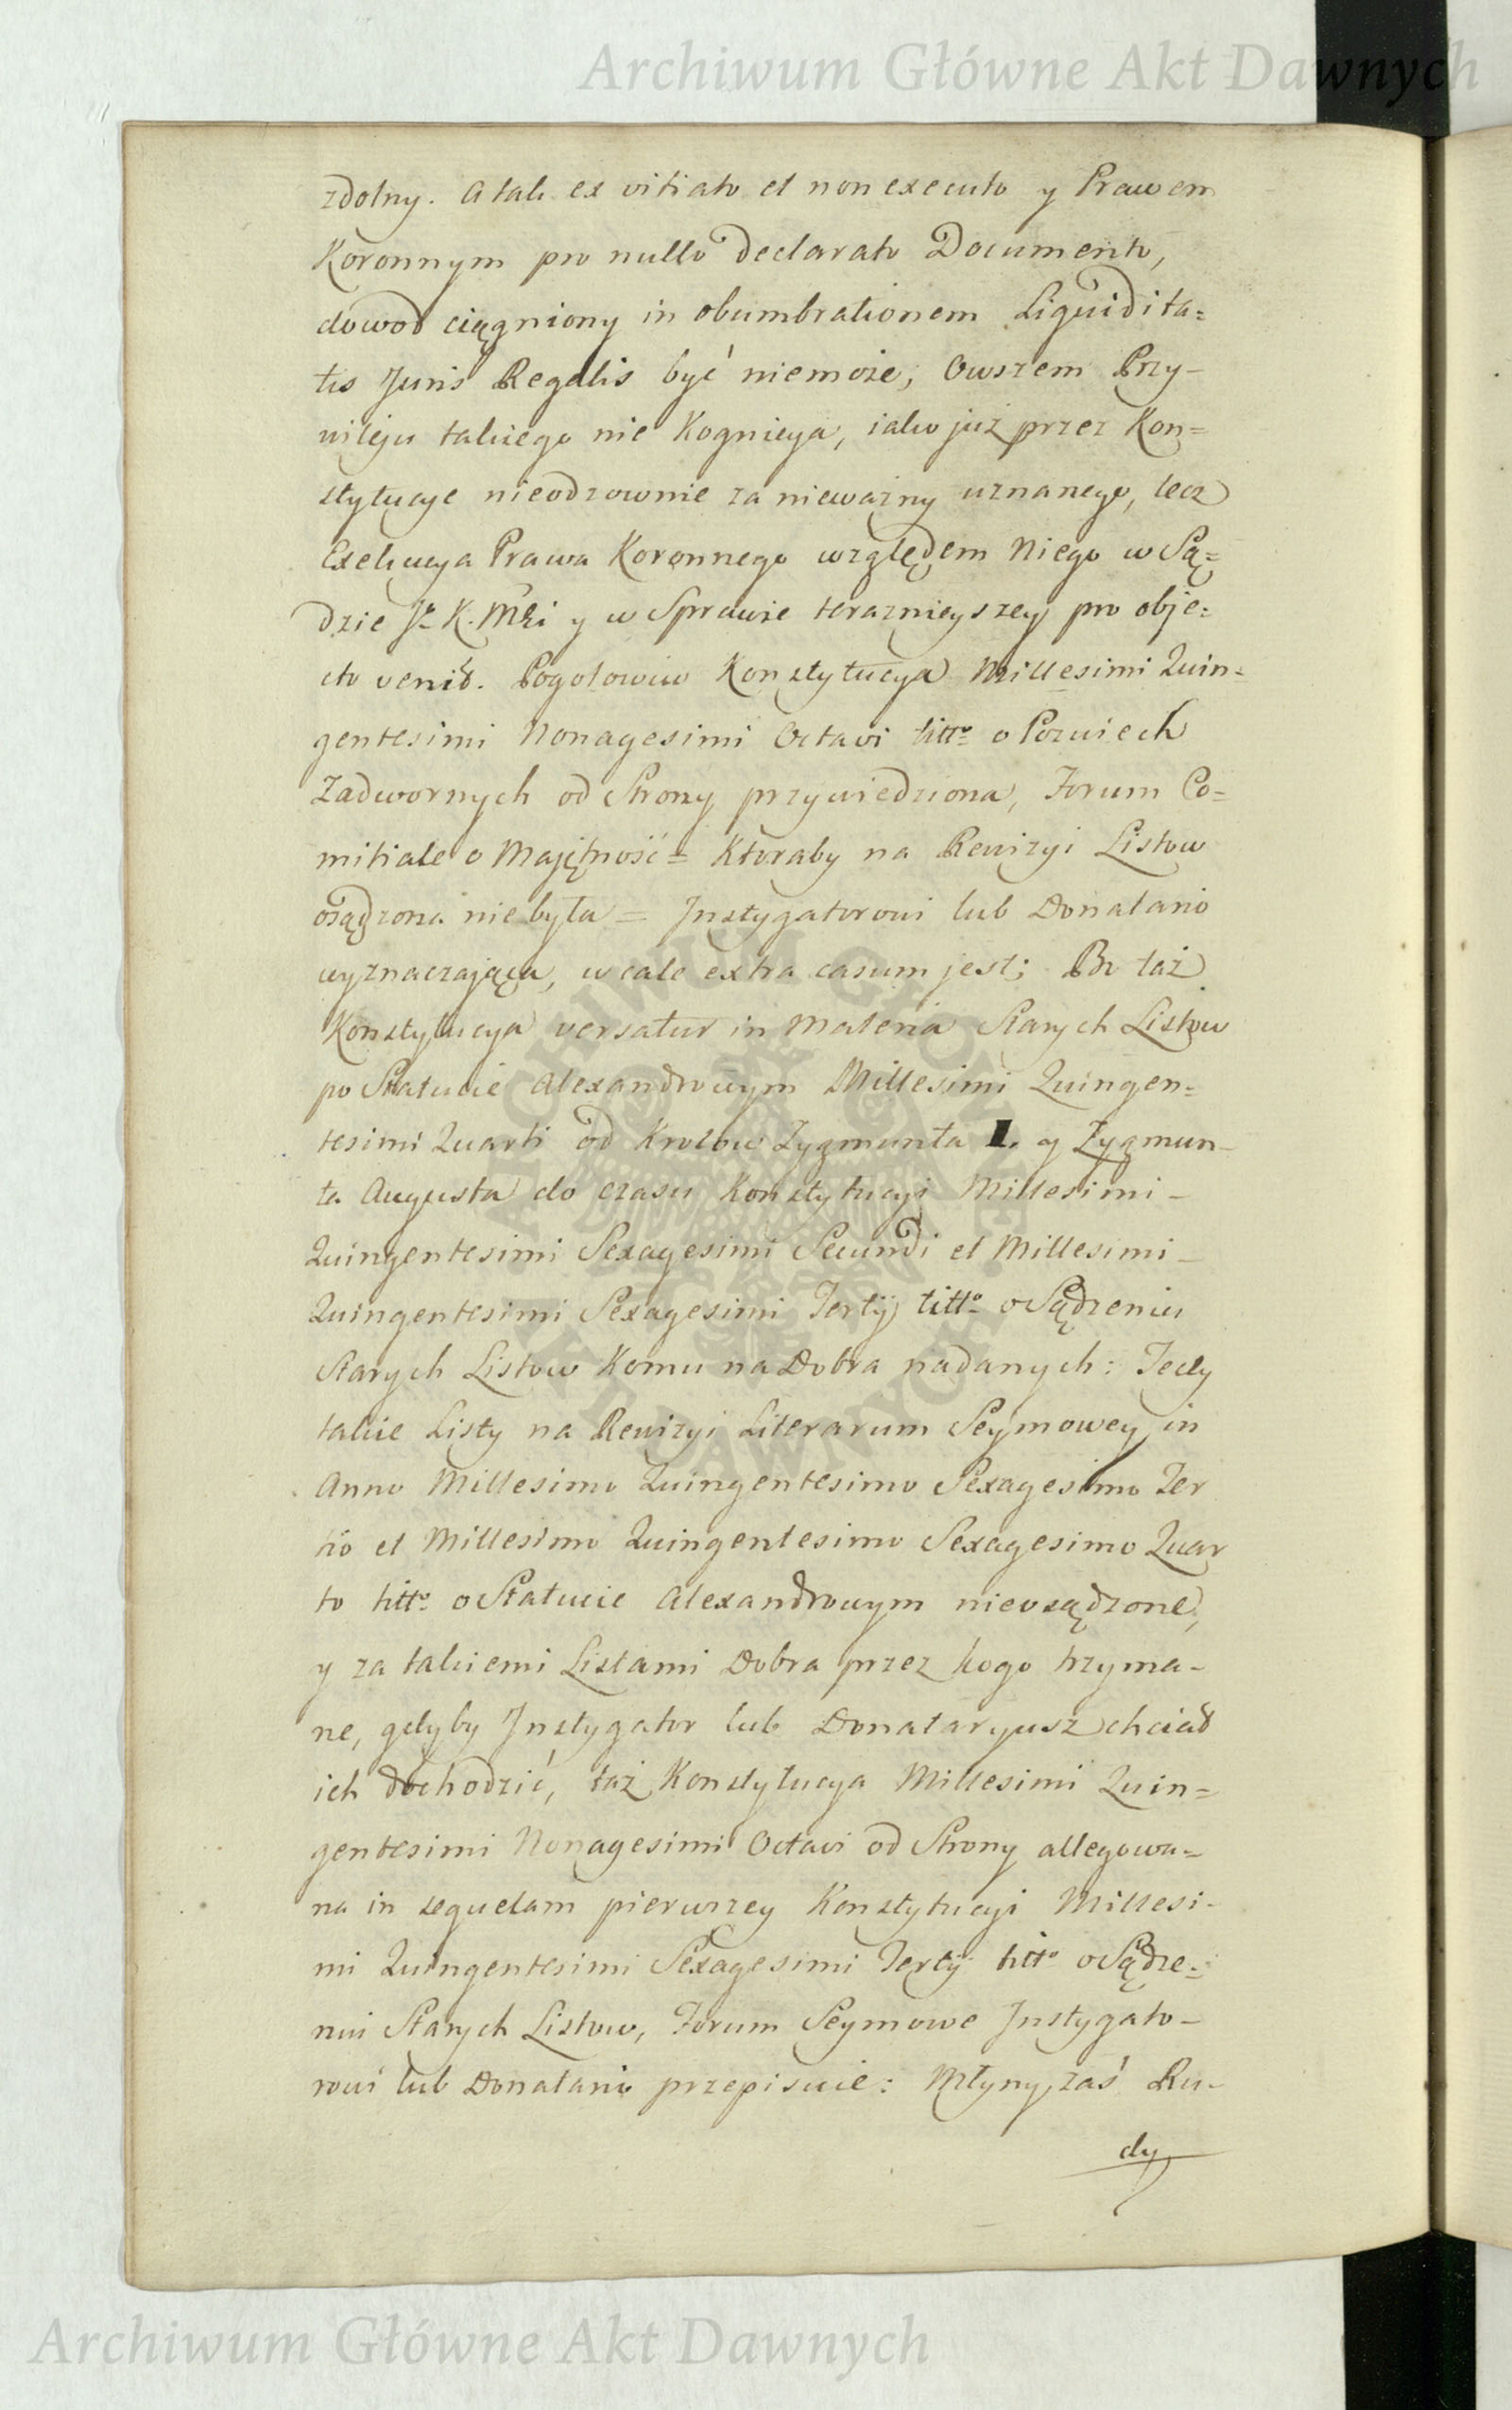 Archiwum Główne Akt Dawnych
zdolny. A tak ex vitiato et non executo y Prawem
Koronnym pro nullo declarato Documento,
dowod ciągniony in obumbrationem Liquidita=
tis Juris Regalis być niemoże; Owszem Przy-
wileju takiego nie Kognicya, iako już przez Kon=
stytucye nieodzownie za nieważny uznanego, lecz
Exekucya Prawa Koronnego względem Niego w Są=
dzie Jº K. Mći y w Sprawie teraznieyszey pro obje=
cto venit. Pogotowiu Konstytucya Millesimi Quin=
gentesimi Nonagesimi Octavi titto o Pozwiech
Zadwornych od Strony przywiedziona, Forum Co=
mitiale o Majętność = Ktoraby na Rewizyi Listow
osądzona niebyła = Jnstygatorowi lub Donatario
wyznaczająca, wcale extra casum jest; Bo taż
Konstytucya versatur in Materia Starych Listow
po Statucie Alexandrowym Millesimi Quingen=
tesimi Quarti od Krolow Zygmunta I. y Zygmun-
ta Augusta do czasu Konstytucyi Millesimi-
Quingentesimi Sexagesimi Secundi et Millesimi-
Quingentesimi Sexagesimi Tertij titto o Sądzeniu
Starych Listow Komu na Dobra nadanych: Tedy
takie Listy na Rewizyi Literarum Seymowey in
Anno Millesimo Quingentesimo Sexagesimo Ter
tio et Millesimo Quingentesimo Sexagesimo Quar
to titto o Statucie Alexandrowym nieosądzone,
y za takiemi Listami Dobra przez kogo trzyma-
ne, gdyby Jnstygator lub Donataryusz chciał
ich dochodzić, taż Konstytucya Millesimi Quin=
gentesimi Nonagesimi Octavi od Strony allegowa=
na in sequelam pierwszey Konstytucyi Millesi-
mi Quingentesimi Sexagesimi Tertij titto o Sądze=
niu Starych Listow, Forum Seymowe Jnstygato-
rowi lub Donatario przepisuie: Młyny zaś Ru-
dy
ARCHIWUM GŁÓWNE AKT DAWNYCH
Archiwum Główne Akt Dawnych